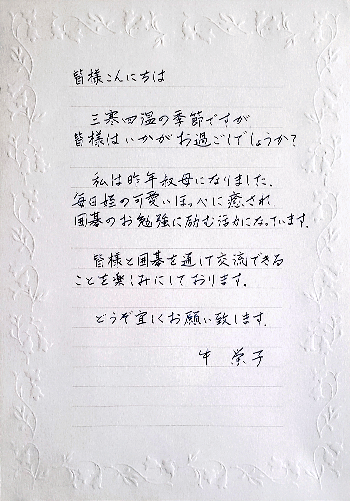 皆様こんにちは
三寒四温の季節ですが
皆様はいかがお過ごしでしょうか?
私は昨年叔母になりました。
毎日姪の可愛いほっぺに癒され
囲碁のお勉強に励む活力になっています。
皆様と囲碁を通して交流できる
ことを楽しみにしております。
どうぞ宜しくお願い致します。
牛 栄子